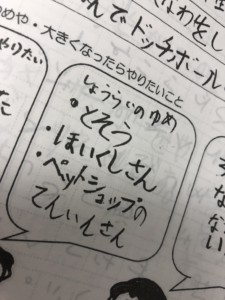 なわをし
んでドッチボール
めや・大きくなったらやりたいこと
やりたい
た
しょうらいのゆめ
・とそう
・ほいくしさん
・ペットショップの
てんいんさん
な
な
い